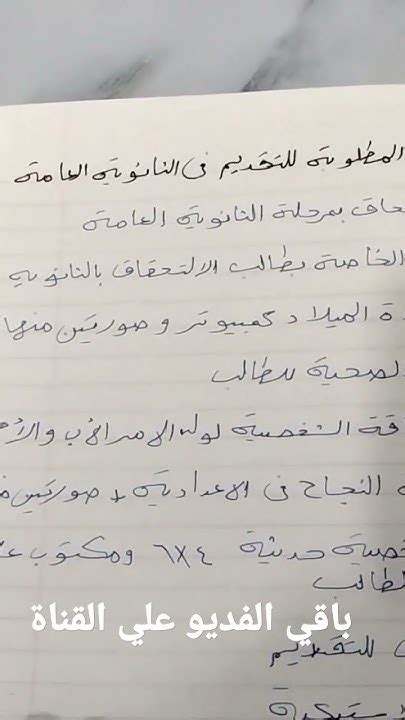 المطلوبة للتقديم فى الثانوية العامة
بمرحلة الثانوية العامة
الخاصة بطالب الالتحاق بالثانوية
الميلاد كمبيوتر و صورتين منها
الصحية للطالب
الشخصية لولى الامر الأب و
النجاح فى الاعدادية + صورتين
حديثة ٤×٦ ومكتوب
باقي الفديو علي القناة
للتقديم